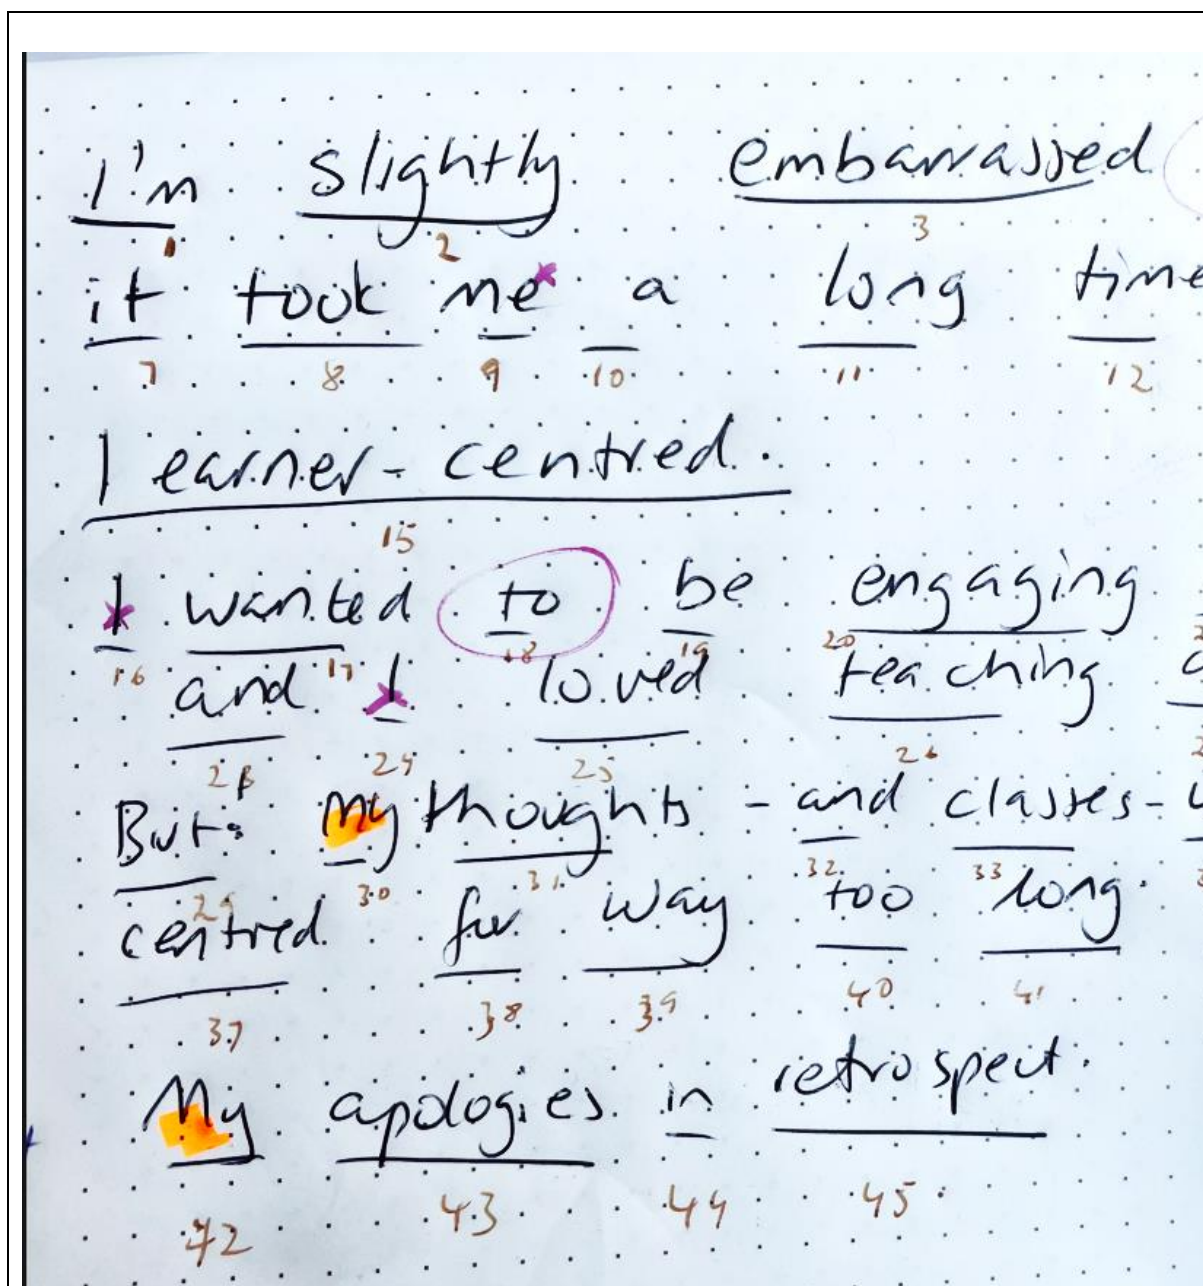 I'm slightly embarrassed
1 2 3
it took me a long time
7 8 9 10 11 12
learner-centred.
15
I wanted to be engaging
16 17 18 19 20
and I loved teaching
24 25 26
But my thoughts - and classes -
29 30 31 32 33
centred for way too long.
37 38 39 40 41
My apologies in retrospect.
42 43 44 45